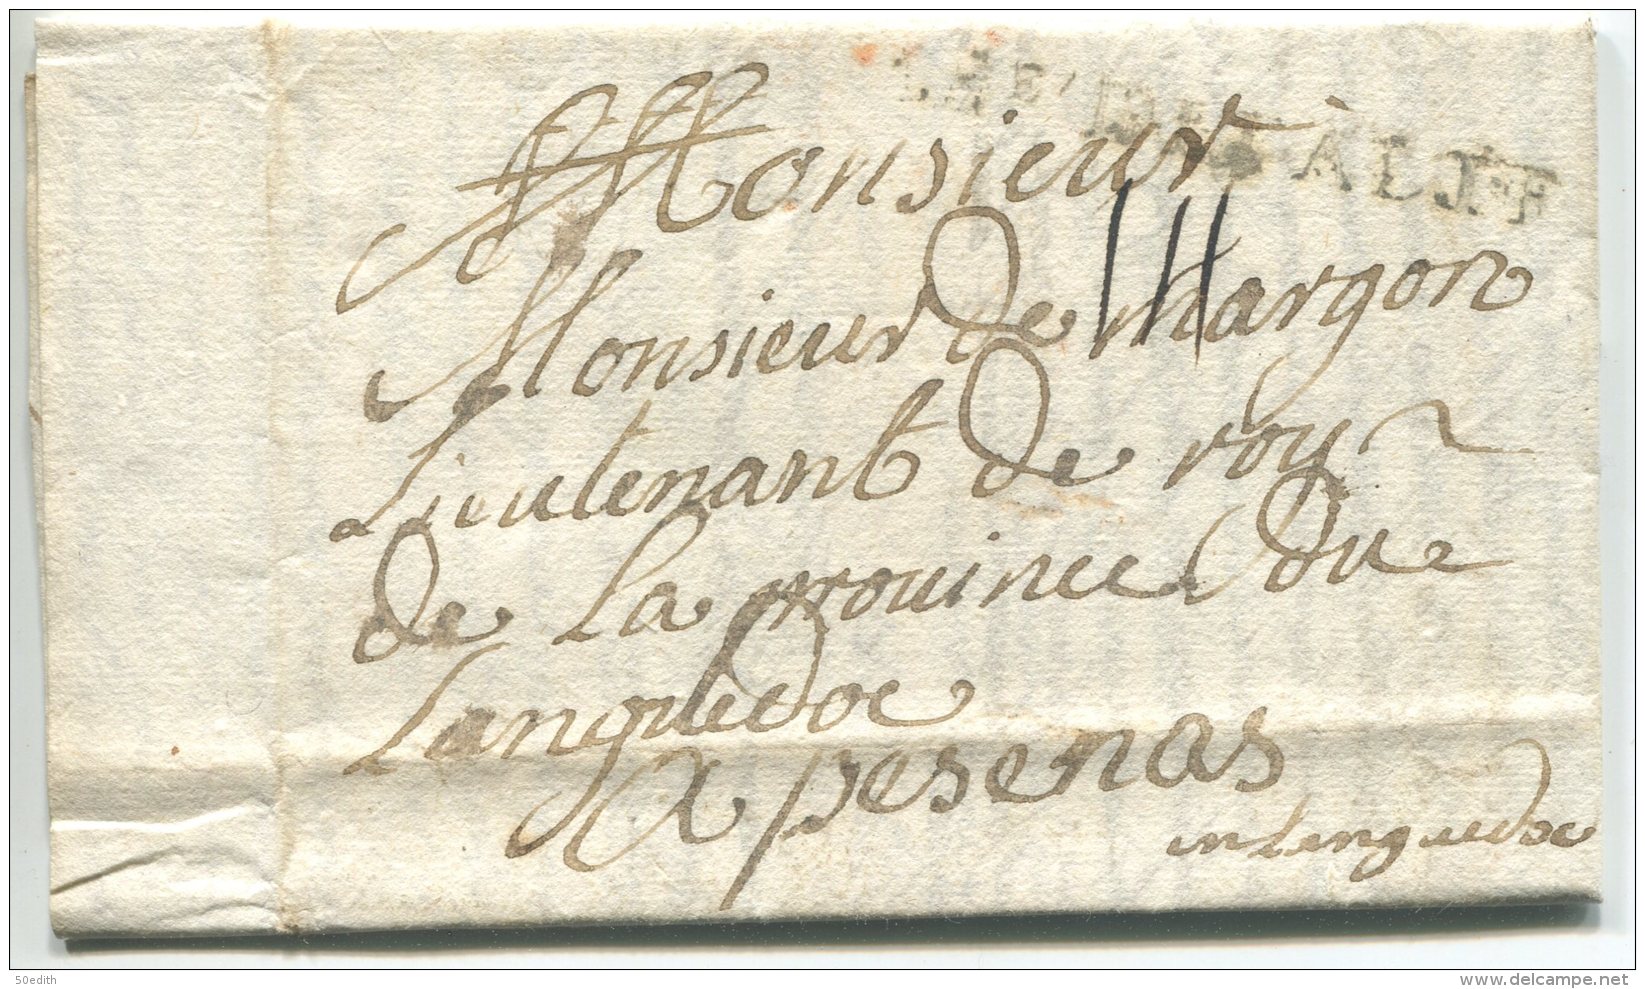 Monsieur
Monsieur de Margon
Lieutenant de roy
de la prouince du
Languedoc
A pesenas
en Lenguedoc
50edith
delcampe.net